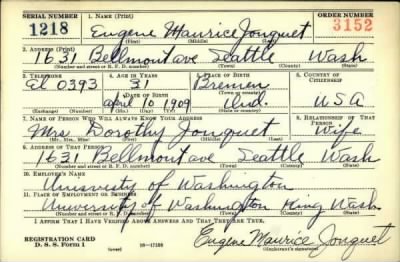 SERIAL NUMBER 1. NAME (Print) ORDER NUMBER
1218 Eugene Maurice Jonquet 3152
(First) (Middle) (Last)
2. ADDRESS (Print)
1631 Bellmont ave Seattle Wash
(Number and street or R. F. D. number) (Town) (County) (State)
3. TELEPHONE 4. AGE IN YEARS 5. PLACE OF BIRTH 6. COUNTRY OF CITIZENSHIP
El 0393 31 Bremen
DATE OF BIRTH (Town or county)
April 10 1909 Ind. USA
(Exchange) (Number) (Mo.) (Day) (Yr.) (State or country)
7. NAME OF PERSON WHO WILL ALWAYS KNOW YOUR ADDRESS 8. RELATIONSHIP OF THAT PERSON
Mrs. Dorothy Jonquet Wife
(Mr., Mrs., Miss) (First) (Middle) (Last)
9. ADDRESS OF THAT PERSON
1631 Bellmont ave Seattle Wash
(Number and street or R. F. D. number) (Town) (County) (State)
10. EMPLOYER'S NAME
University of Washington
11. PLACE OF EMPLOYMENT OR BUSINESS
University of Washington King Wash.
(Number and street or R. F. D. number) (Town) (County) (State)
I AFFIRM THAT I HAVE VERIFIED ABOVE ANSWERS AND THAT THEY ARE TRUE.
REGISTRATION CARD
D. S. S. Form 1 (over) 16—17105 Eugene Maurice Jonquet
(Registrant's signature)